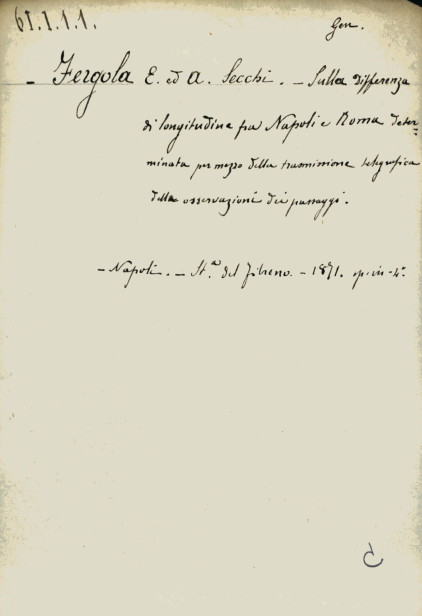 61.1.1.1.
Gen.
- Fergola E. ed A. Secchi. - Sulla differenza
di longitudine fra Napoli e Roma deter=
minata per mezzo della trasmissione telegrafica
delle osservazioni dei passaggi.
- Napoli. - St.ª del Fibreno. - 1871. op. in-4º.